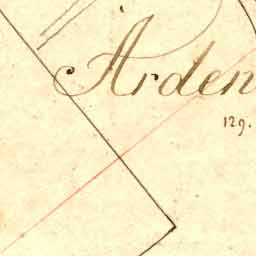 Arden
129.